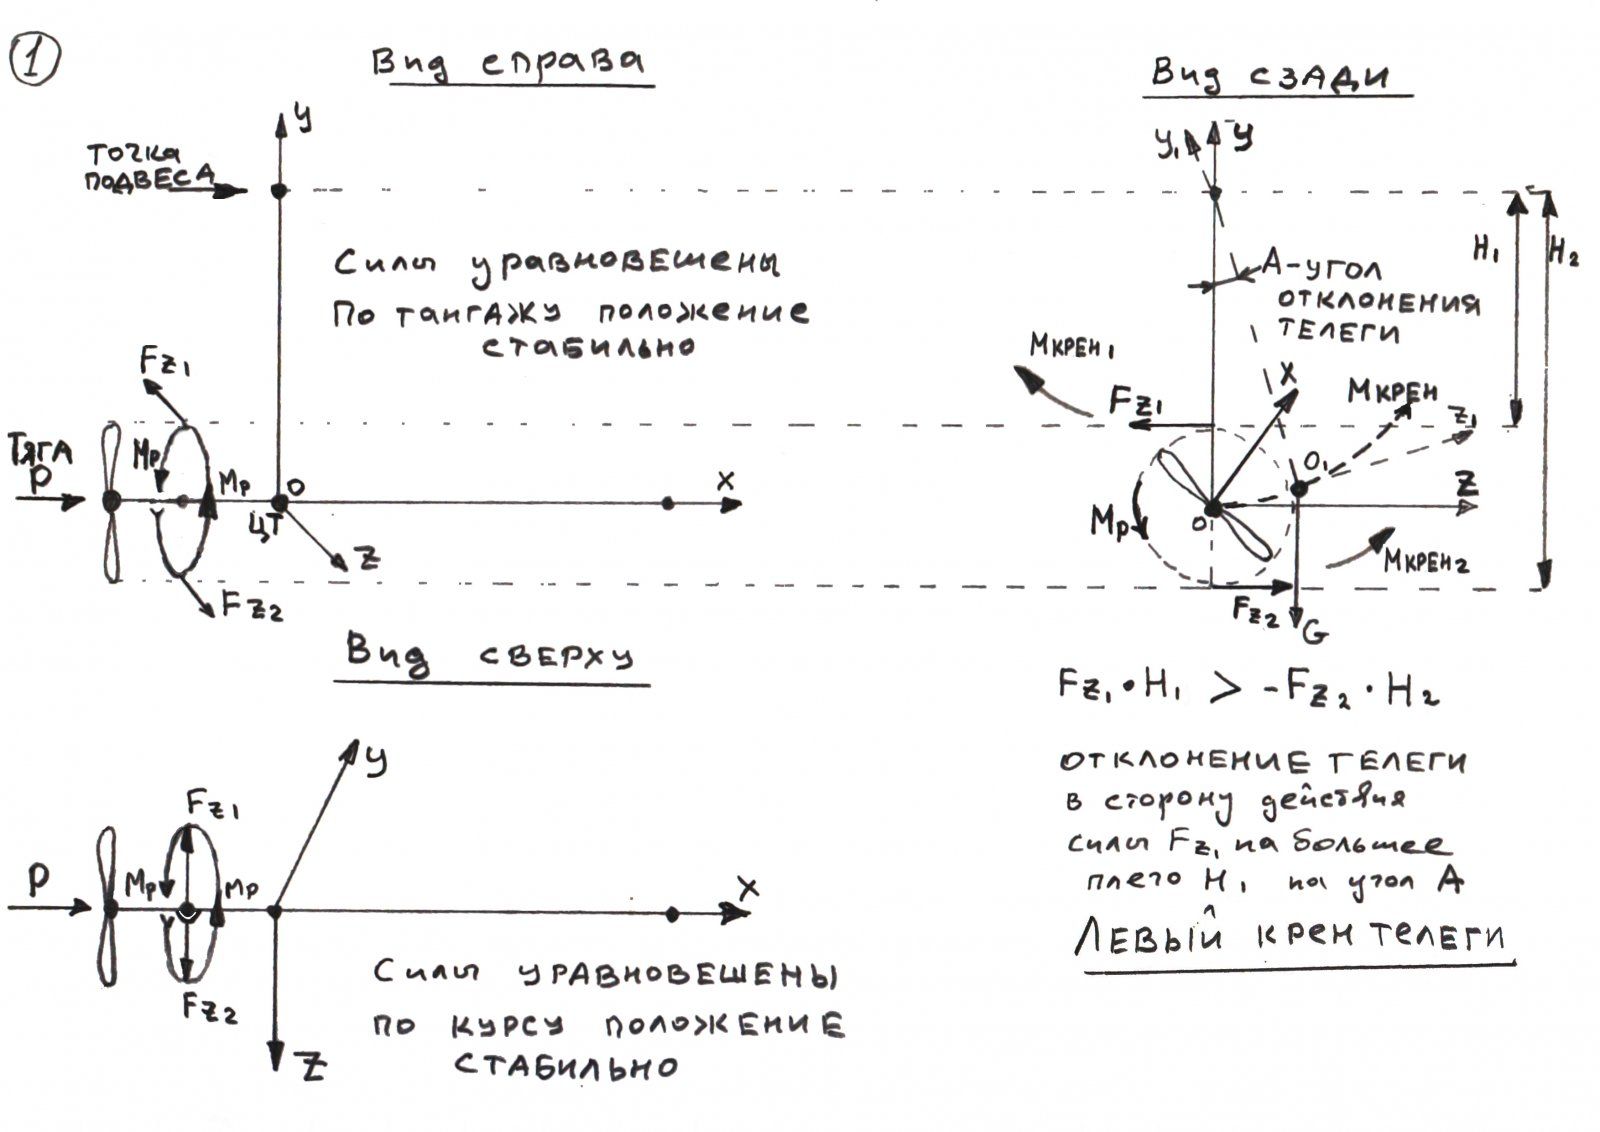 1
Вид справа
Y
Точка
подвеса
Силы уравновешены
По тангажу положение
стабильно
Fz1
Тяга
P
Mp
Mp
O
ЦТ
X
Z
Fz2
Вид сзади
Y1
Y
H1
H2
A-угол
отклонения
телеги
Mкрен1
X
Fz1
Mкрен
Z1
O1
Z
O
Mp
Mкрен2
Fz2
G
Fz1·H1 > -Fz2·H2
отклонение телеги
в сторону действия
силы Fz1 на большее
плечо H1 на угол A
Левый крен телеги
Вид сверху
Y
Fz1
P
Mp
Mp
X
Fz2
Z
Силы уравновешены
по курсу положение
стабильно